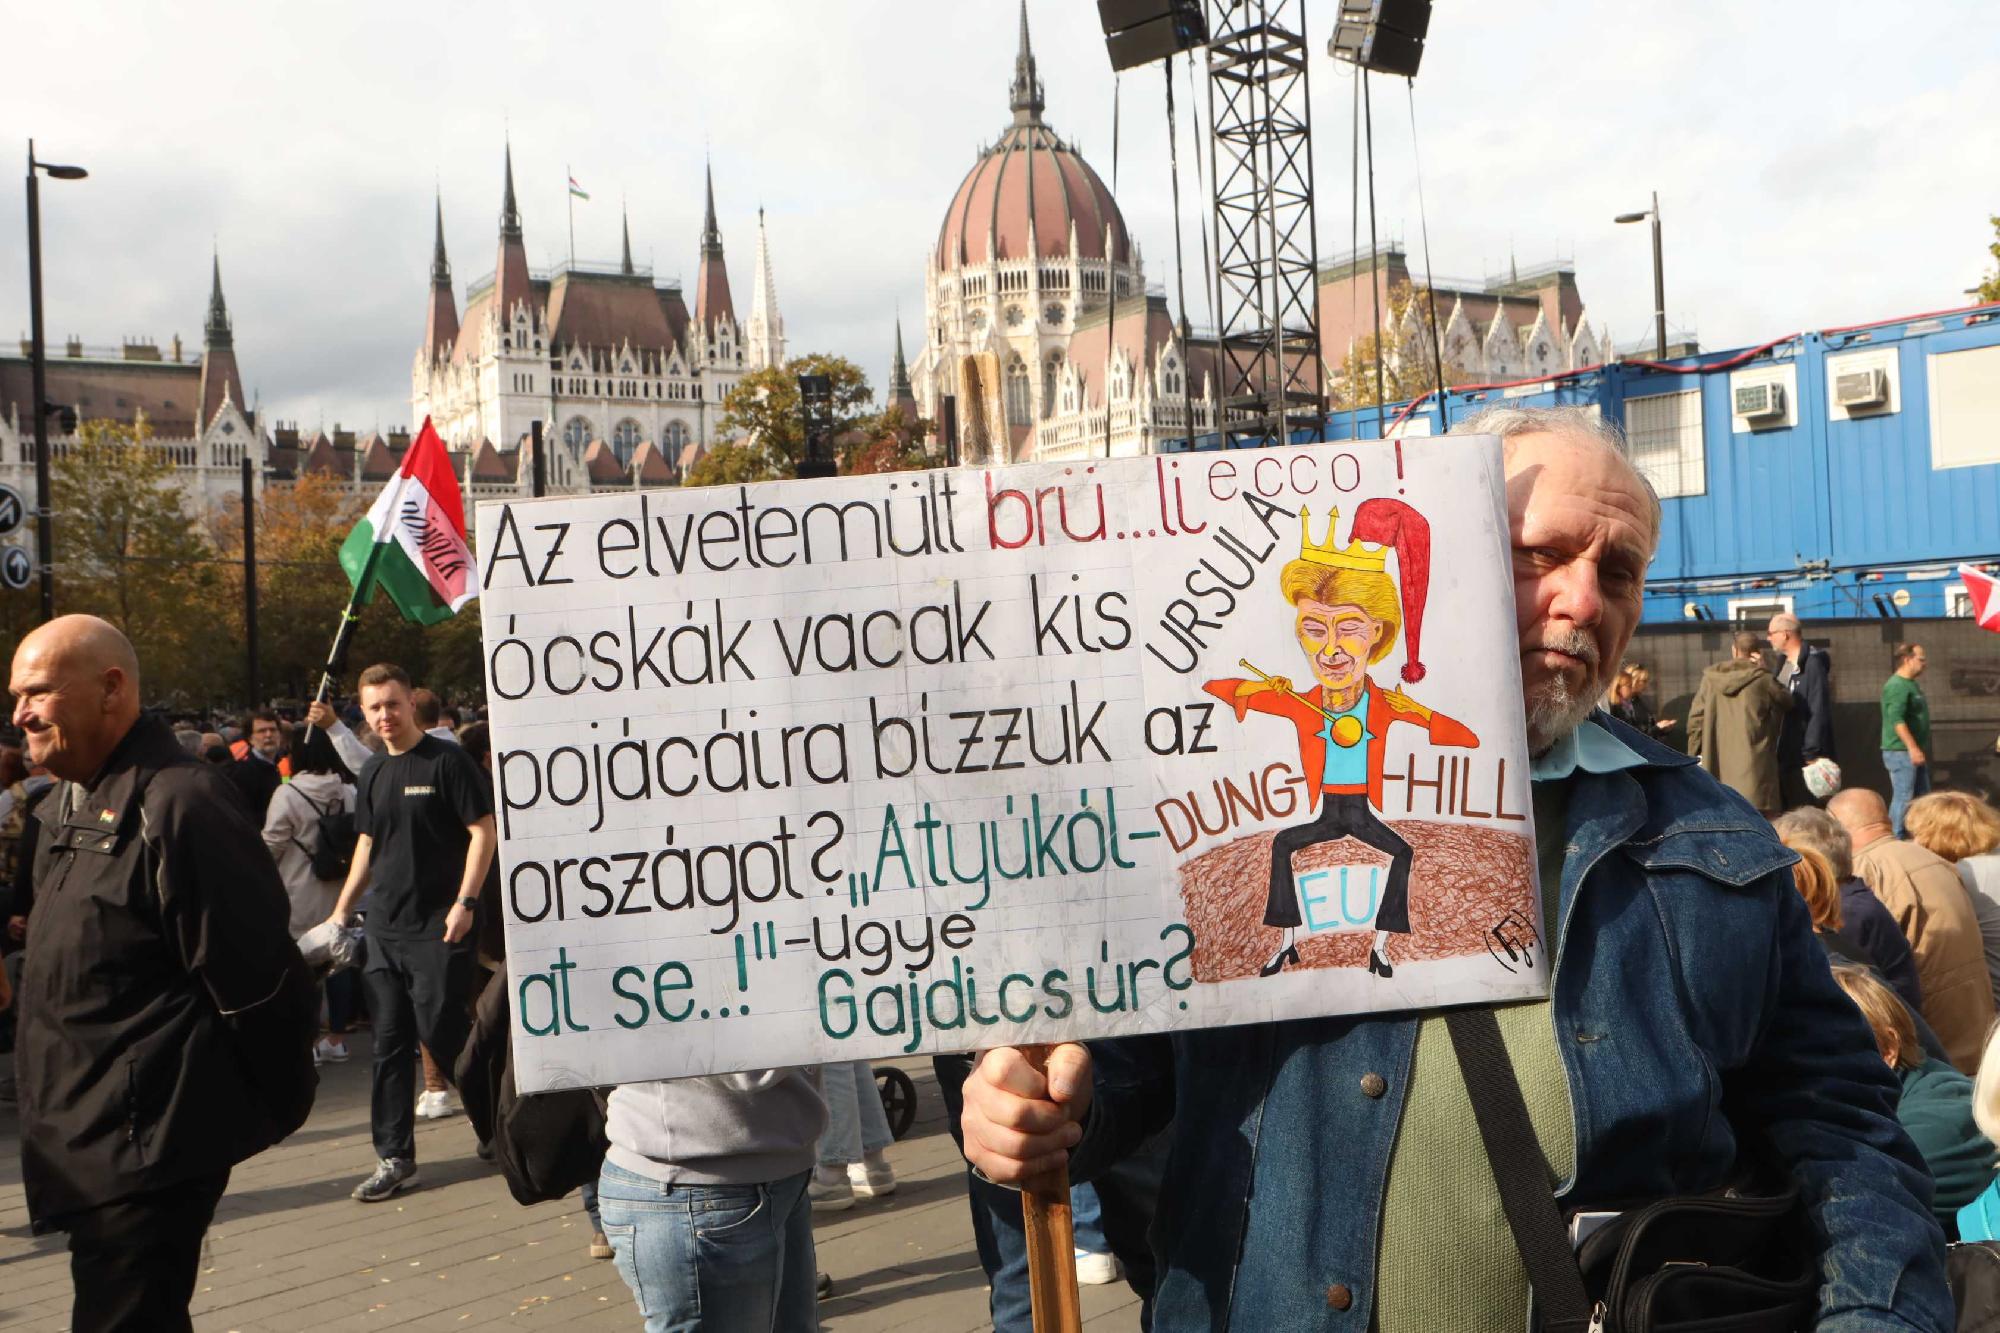 Az elvetemült brü...li
ecco!
ócskák vacak kis
pojácáira bízzuk az
országot? „Atyúkól-
at se..!" -Ugye
Gajdics úr?
URSULA
DUNG- -HILL
EU